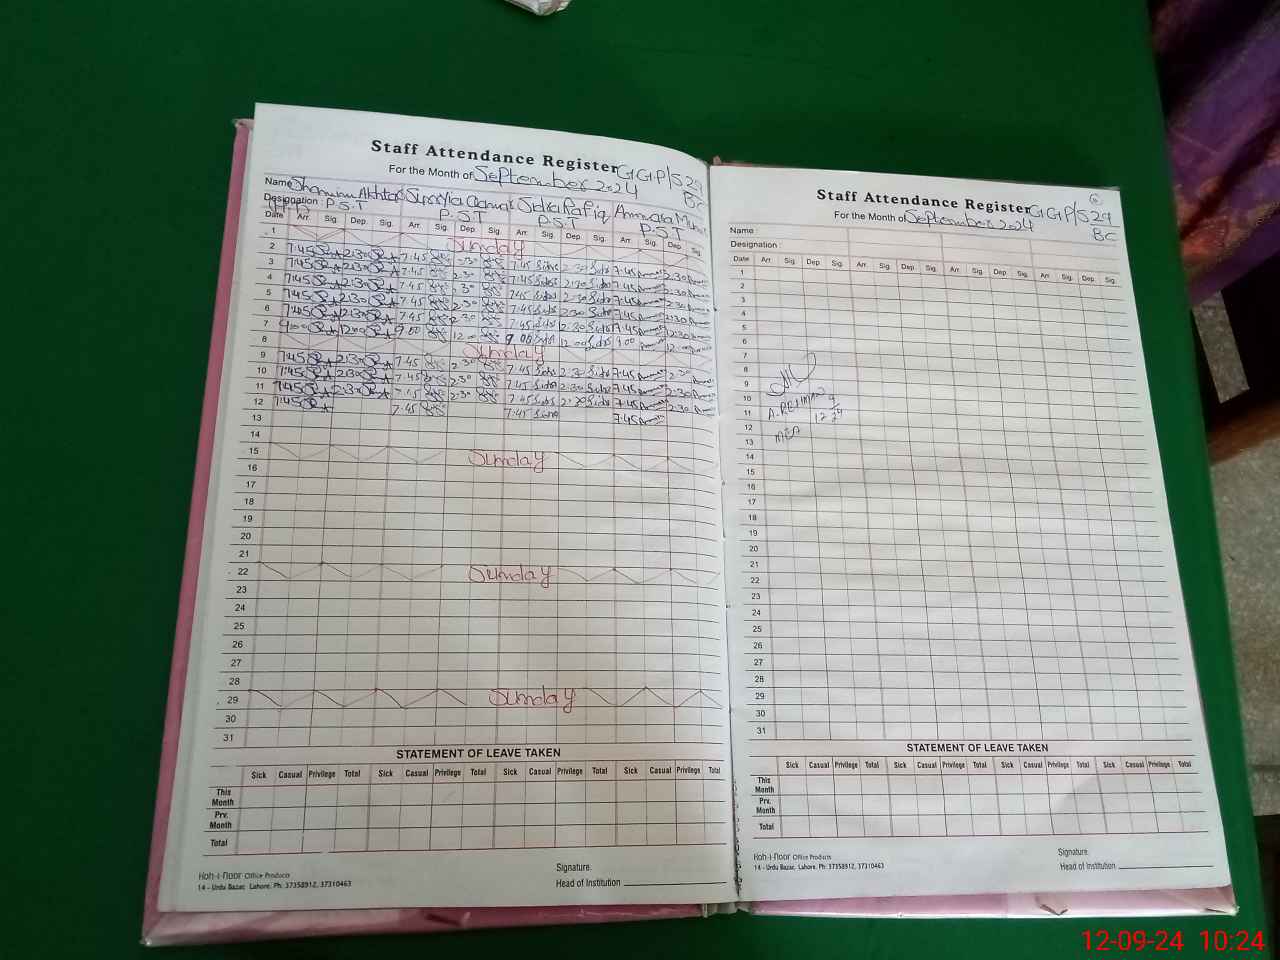 Staff Attendance Register GGP/S 29
For the Month of September 2024 BC
Name Shamim Akhtar Sidra Rafiq
Designation : P.S.T P.S.T P.S.T P.S.T
Date Arr. Sig. Dep. Sig. Arr. Sig. Dep. Sig. Arr. Sig. Dep. Sig. Arr. Sig. Dep. Sig.
1 Sunday
2 7:45 2:30 7:45 2:30 7:45 Sidra 2:30 Sidra 7:45 2:30
3 7:45 2:30 7:45 2:30 7:45 Sidra 2:30 Sidra 7:45 2:30
4 7:45 2:30 7:45 2:30 7:45 Sidra 2:30 Sidra 7:45 2:30
5 7:45 2:30 7:45 2:30 7:45 Sidra 2:30 Sidra 7:45 2:30
6 7:45 2:30 7:45 2:30 7:45 Sidra 2:30 Sidra 7:45 2:30
7 9:00 12:00 9:00 12:00 9:00 Sidra 12:00 Sidra 9:00 12:00
8 Sunday
9 7:45 2:30 7:45 2:30 7:45 Sidra 2:30 Sidra 7:45 2:30
10 7:45 2:30 7:45 2:30 7:45 Sidra 2:30 Sidra 7:45 2:30
11 7:45 2:30 7:45 2:30 7:45 Sidra 2:30 Sidra 7:45 2:30
12 7:45 7:45 7:45 Sidra 7:45
13
14
15 Sunday
16
17
18
19
20
21
22 Sunday
23
24
25
26
27
28
29 Sunday
30
31
STATEMENT OF LEAVE TAKEN
Sick Casual Privilege Total Sick Casual Privilege Total Sick Casual Privilege Total Sick Casual Privilege Total
This Month
Prv. Month
Total
Koh-i-Noor Office Products
14 - Urdu Bazar, Lahore. Ph: 37358912, 37310463
Signature.
Head of Institution
Staff Attendance Register GGP/S 29
For the Month of September 2024 BC
Name :
Designation :
Date Arr. Sig. Dep. Sig. Arr. Sig. Dep. Sig. Arr. Sig. Dep. Sig. Arr. Sig. Dep. Sig.
1
2
3
4
5
6
7
8
9
10
11 A.REHMAN 12/9/24
12
13 MEA
14
15
16
17
18
19
20
21
22
23
24
25
26
27
28
29
30
31
STATEMENT OF LEAVE TAKEN
Sick Casual Privilege Total Sick Casual Privilege Total Sick Casual Privilege Total Sick Casual Privilege Total
This Month
Prv. Month
Total
Koh-i-Noor Office Products
14 - Urdu Bazar, Lahore. Ph: 37358912, 37310463
Signature.
Head of Institution
12-09-24 10:24